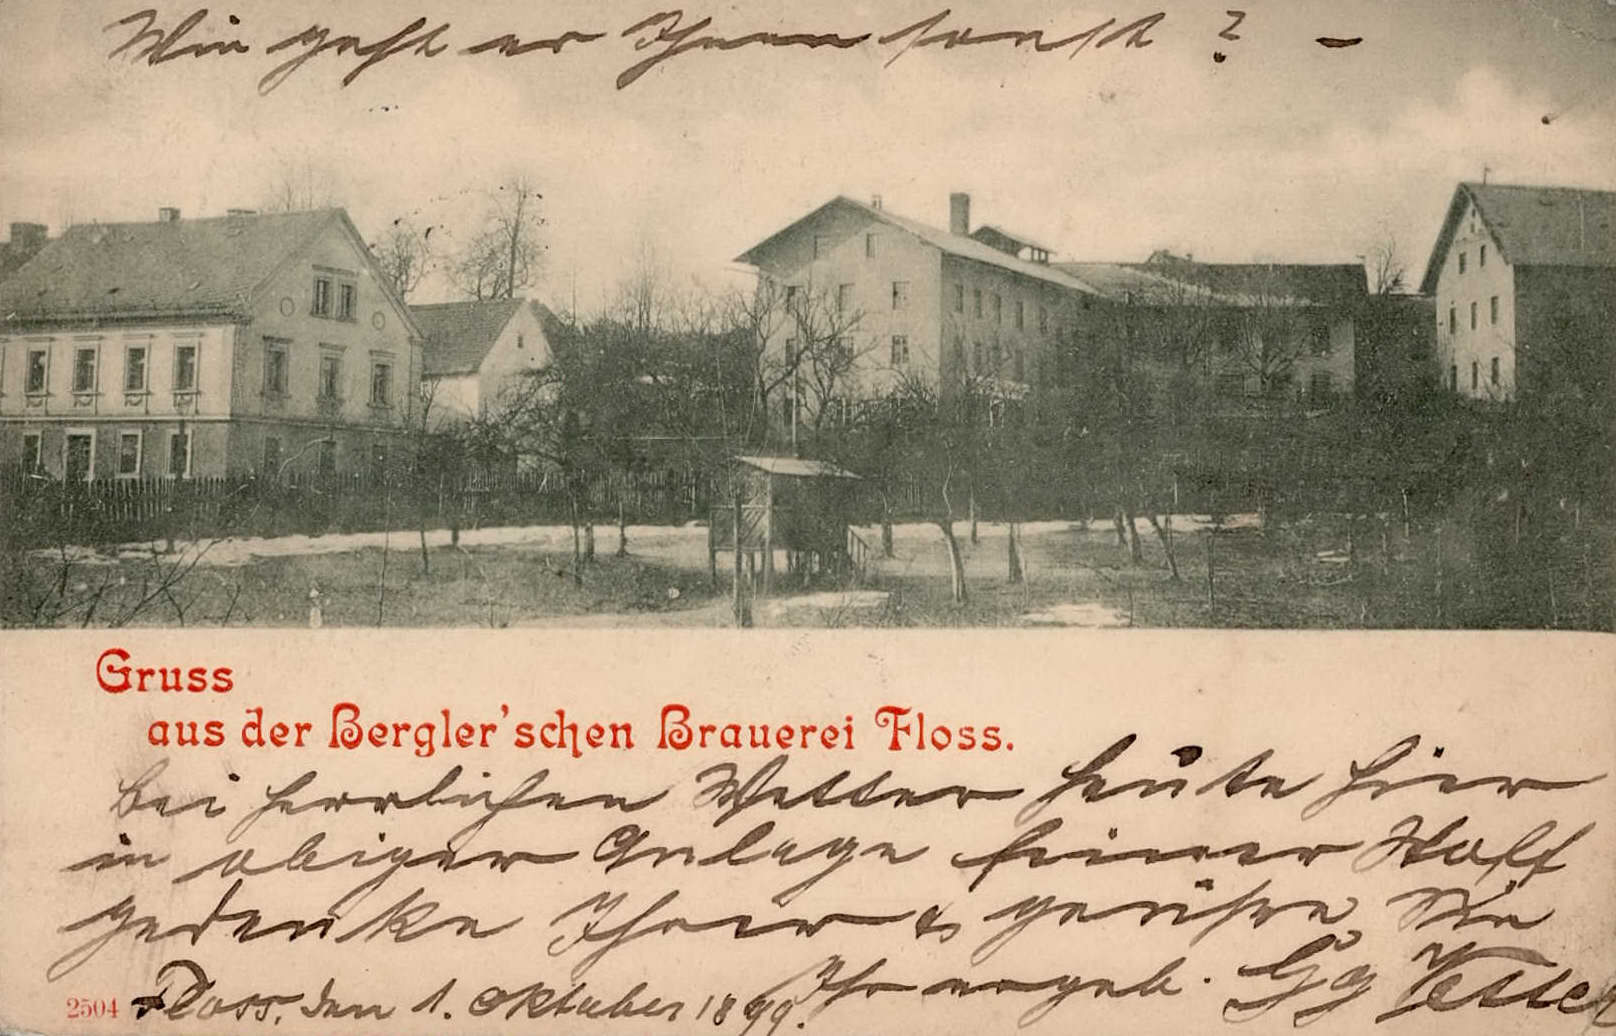 Wie geht es Ihnen sonst ? –
Gruss
aus der Bergler'schen Brauerei Floss.
Bei herrlichen Wetter heute hier
in obiger Anlage feiner
gedenke Ihrer & grüße Sie
Ihr ergeb. Gg
2504 Floss, den 1. Oktober 1899.